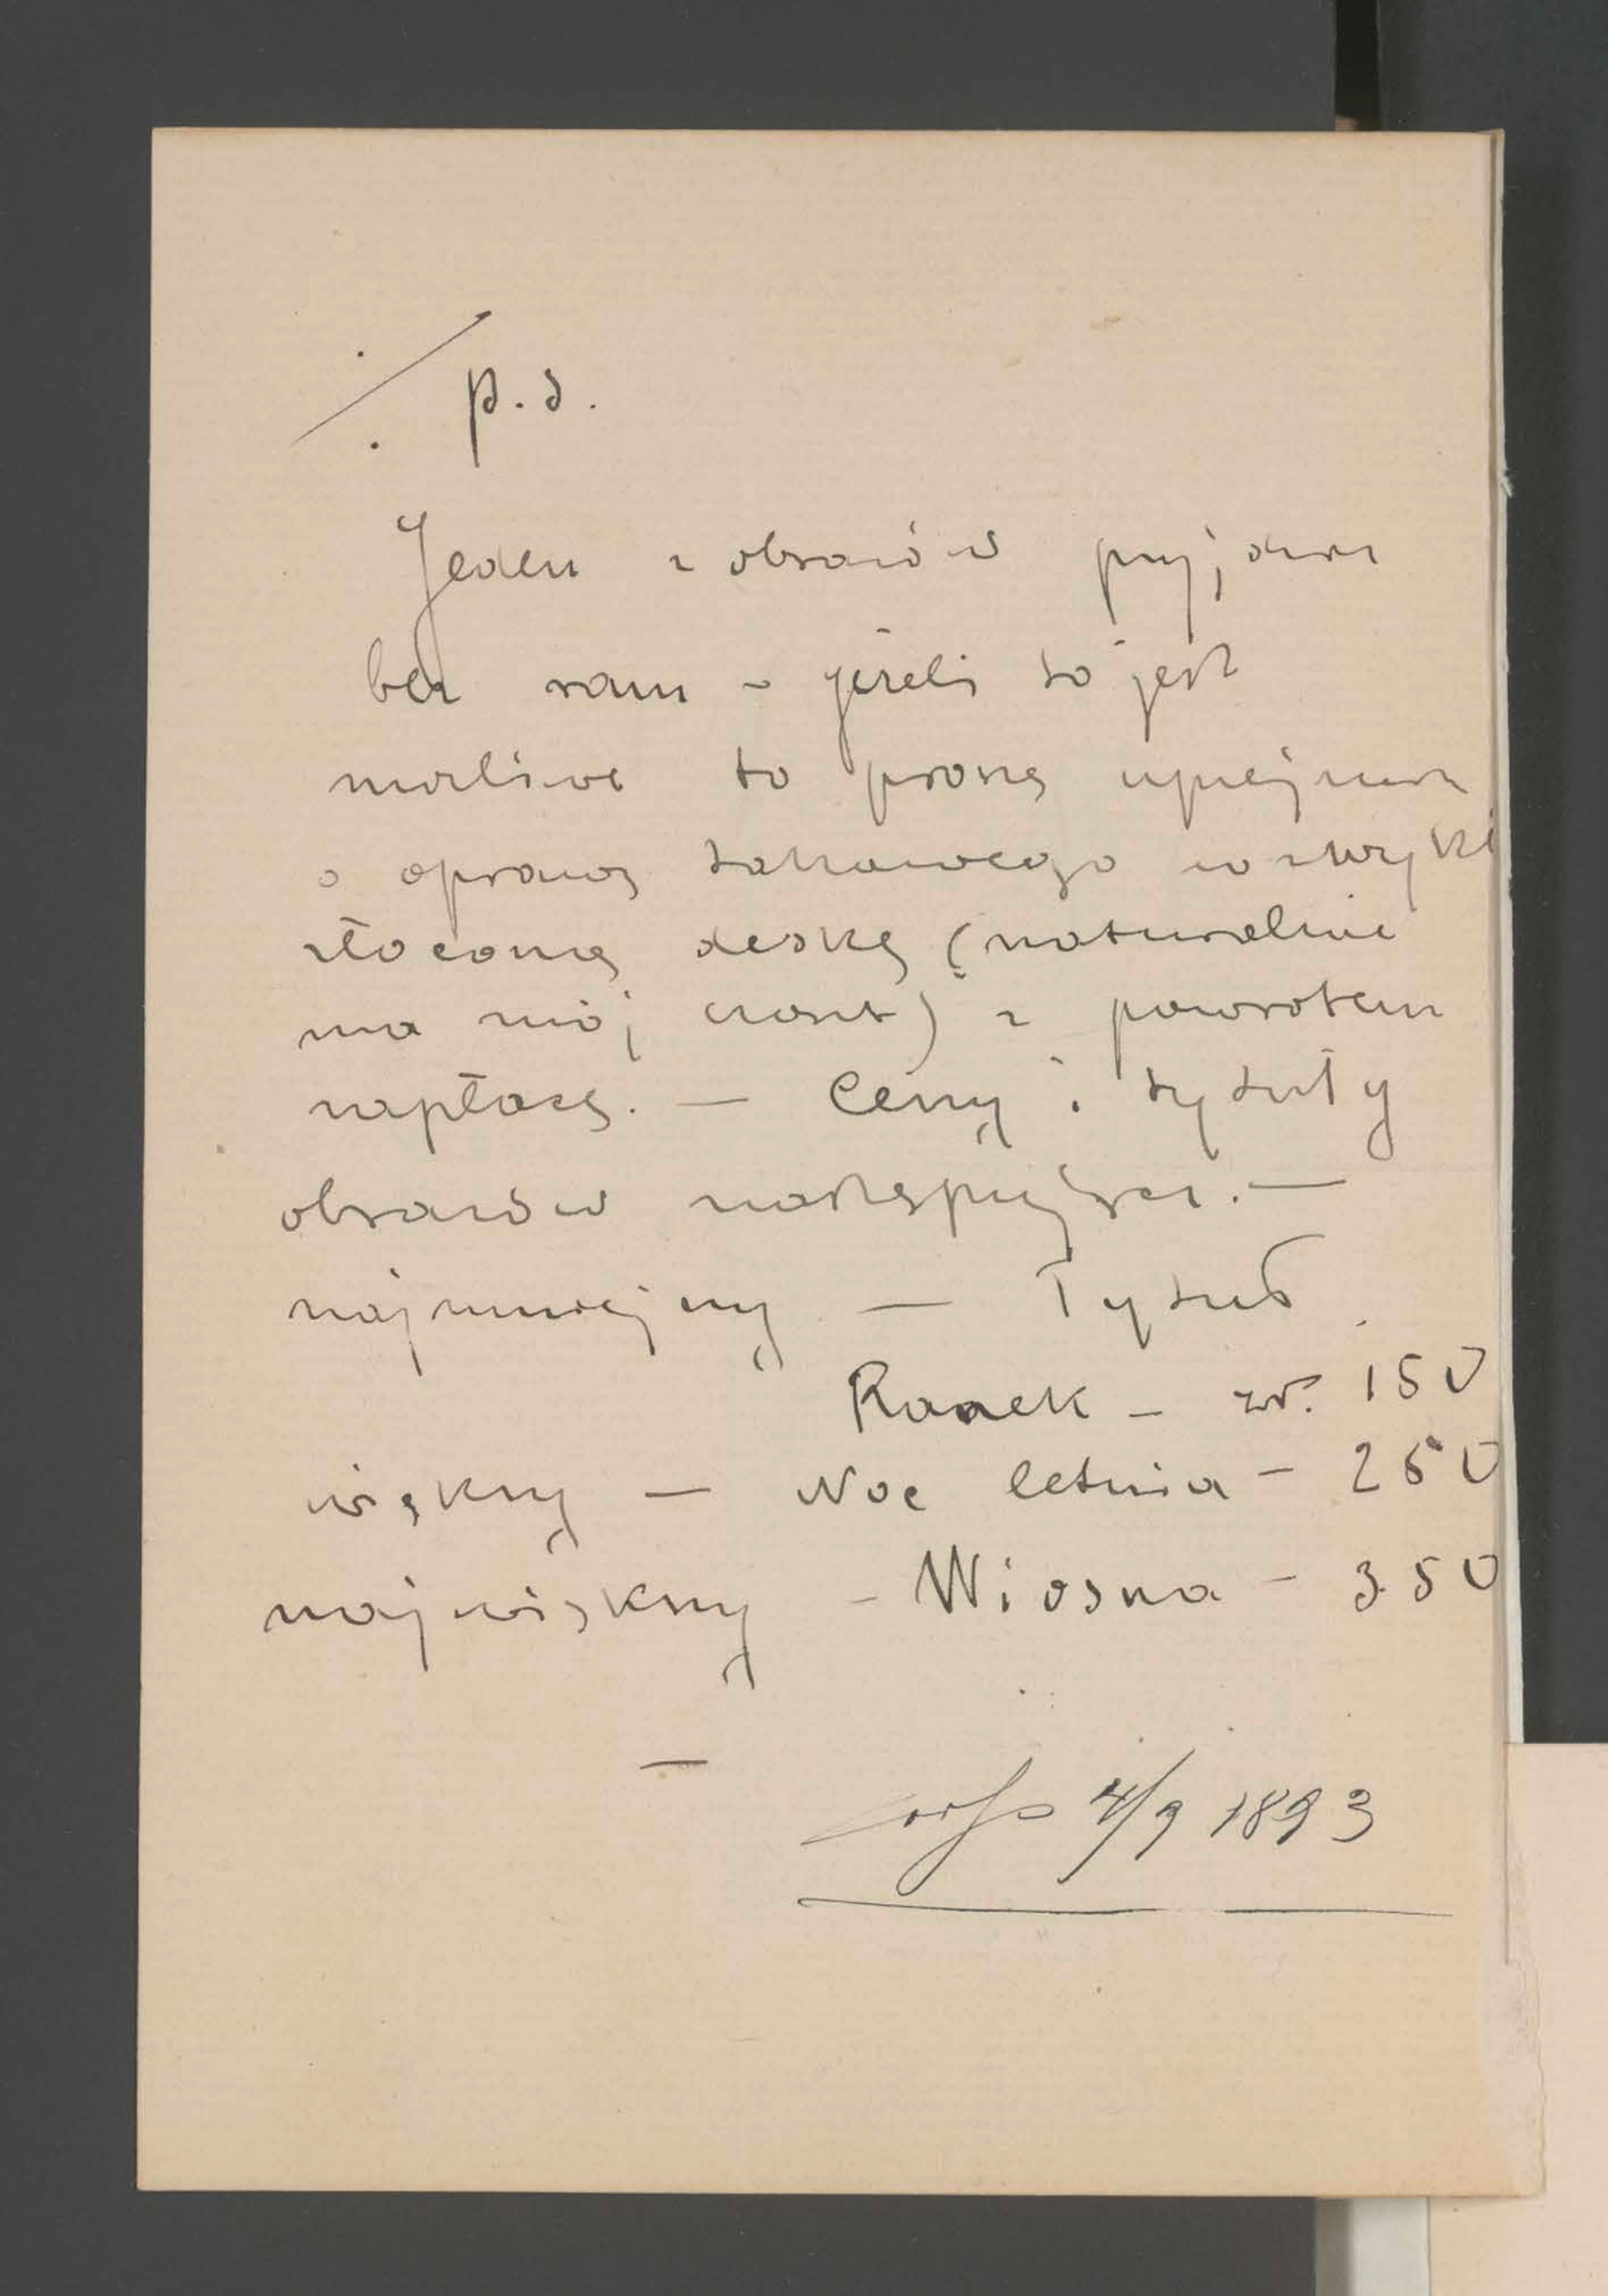 ./. p.s.
Jeden z obrazów przyjdzie
bez ram - jeżeli to jest
możliwe to proszę uprzejmie
o oprawę takowego w zwykł
złoconą deskę (naturalnie
na mój koszt) z powrotem
zapłacę. — Ceny i tytuły
obrazów następujące. —
najmniejszy — Tytuł
Ranek — zł. 150
większy — Noc letnia — 250
największy — Wiosna — 350
—
4/9 1893